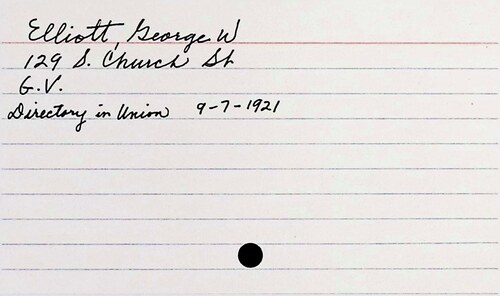 Elliott, George W
129 S. Church St
G.V.
Directory in Union 9-7-1921